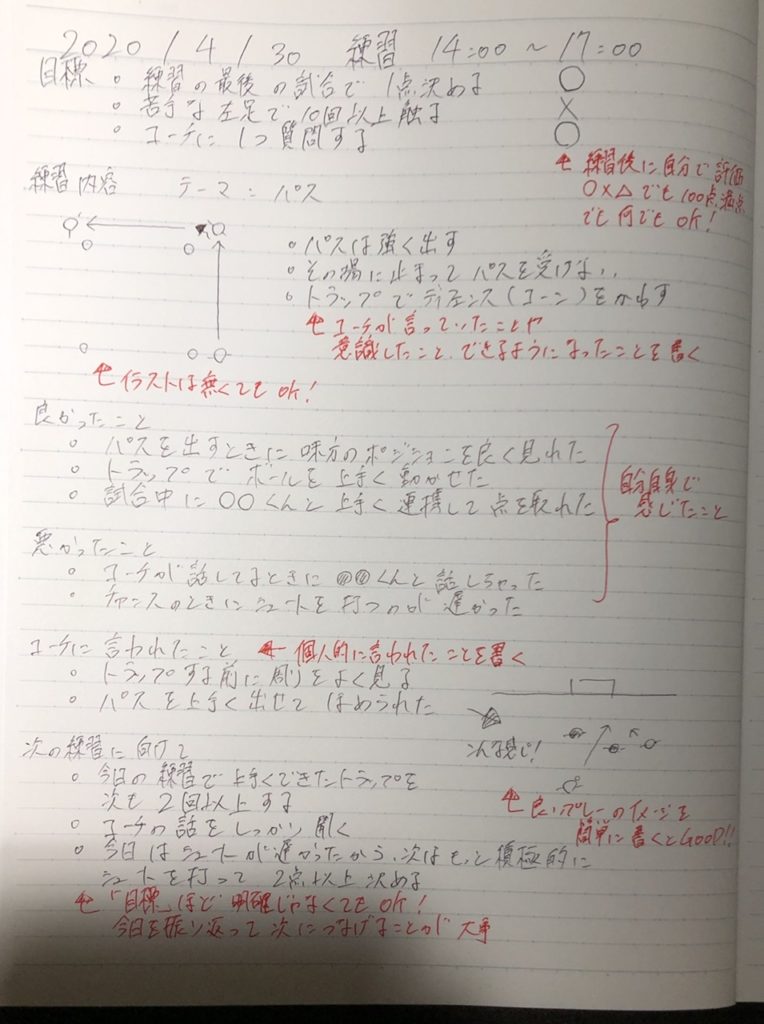 2020/4/30 練習 14:00～17:00
目標 ○ 練習の最後の試合で1点決める ○
○ 苦手な左足で10回以上触る ×
○ コーチに1つ質問する ○
← 練習後に自分で評価
○×△でも100点満点
でも何でもOK!
練習内容 テーマ：パス
○ パスは強く出す
○ その場に止まってパスを受けない
○ トラップでディフェンス(コーン)をかわす
← コーチが言っていたことや
意識したこと、できるようになったことを書く
← イラストは無くてもOK!
良かったこと
○ パスを出すときに味方のポジションを良く見れた
○ トラップでボールを上手く動かせた
○ 試合中に○○くんと上手く連携して点を取れた
自分自身で
感じたこと
悪かったこと
○ コーチが話してるときに◎◎くんと話しちゃった
○ チャンスのときにシュートを打つのが遅かった
コーチに言われたこと ← 個人的に言われたことを書く
○ トラップする前に周りをよく見る
○ パスを上手く出せてほめられた
こんな感じ!
← 良いプレーのイメージを
簡単に書くとGOOD!!
次の練習に向けて
○ 今日の練習で上手くできたトラップを
次も2回以上する
○ コーチの話をしっかり聞く
○ 今日はシュートが遅かったから、次はもっと積極的に
シュートを打って2点以上決める
← 「目標」ほど明確じゃなくてもOK!
今日を振り返って次につなげることが大事